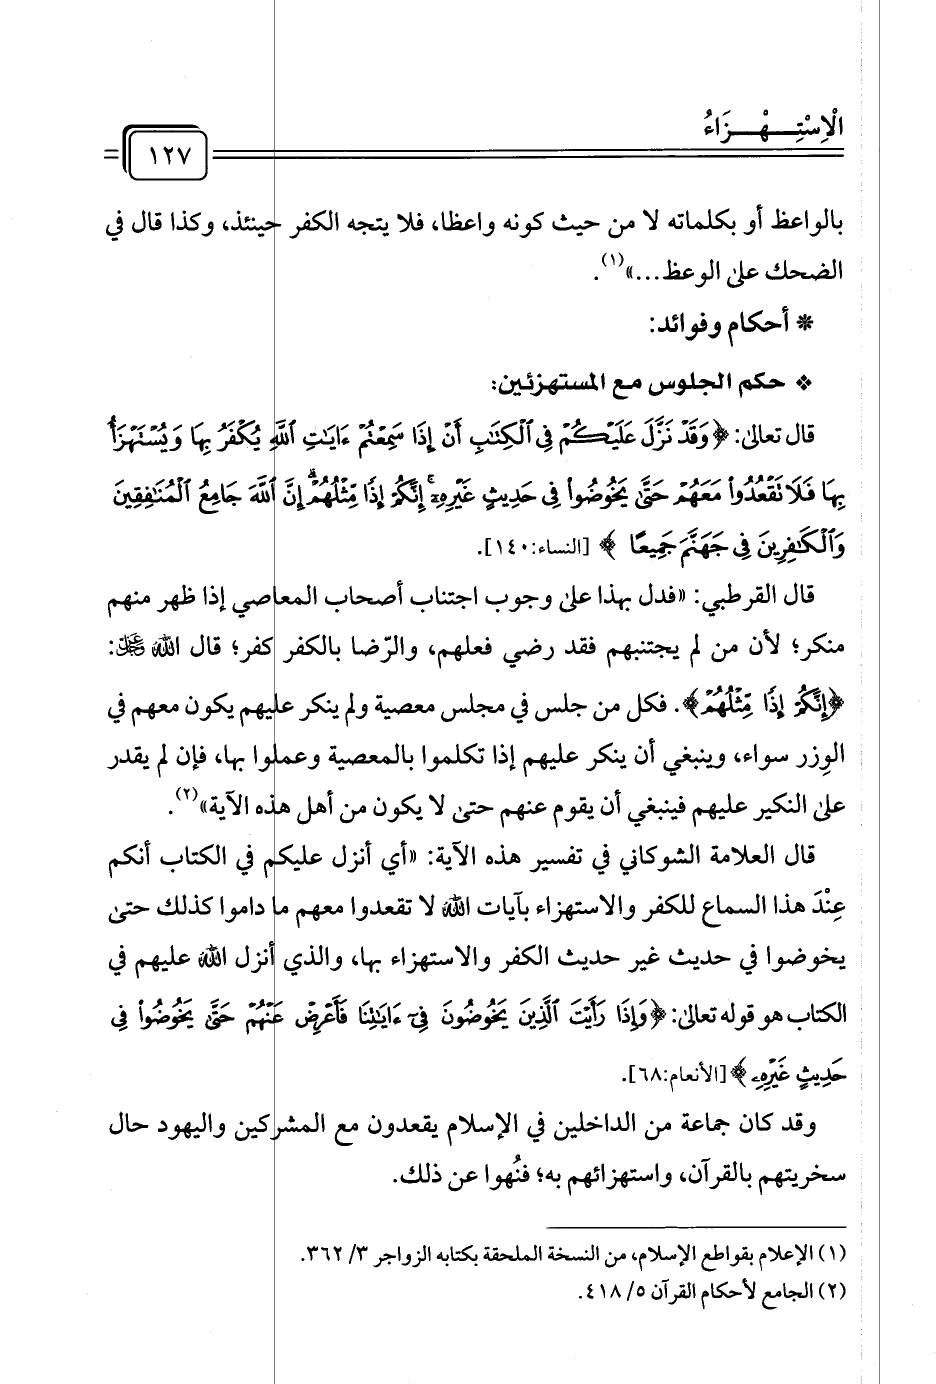 الْاِسْتِـهْـزَاءُ
١٢٧
بالواعظ أو بكلماته لا من حيث كونه واعظا، فلا يتجه الكفر حينئذ، وكذا قال في
الضحك على الوعظ...»(١).
* أحكام وفوائد:
❖ حكم الجلوس مع المستهزئين:
قال تعالى: ﴿وَقَدْ نَزَّلَ عَلَيْكُمْ فِي ٱلْكِتَٰبِ أَنْ إِذَا سَمِعْتُمْ ءَايَٰتِ ٱللَّهِ يُكْفَرُ بِهَا وَيُسْتَهْزَأُ
بِهَا فَلَا تَقْعُدُوا۟ مَعَهُمْ حَتَّىٰ يَخُوضُوا۟ فِي حَدِيثٍ غَيْرِهِۦٓ ۚ إِنَّكُمْ إِذًا مِّثْلُهُمْ ۗ إِنَّ ٱللَّهَ جَامِعُ ٱلْمُنَٰفِقِينَ
وَٱلْكَٰفِرِينَ فِي جَهَنَّمَ جَمِيعًا ﴾ [النساء:١٤٠].
قال القرطبي: «فدل بهذا على وجوب اجتناب أصحاب المعاصي إذا ظهر منهم
منكر؛ لأن من لم يجتنبهم فقد رضي فعلهم، والرّضا بالكفر كفر؛ قال الله ﷿:
﴿إِنَّكُمْ إِذًا مِّثْلُهُمْ﴾. فكل من جلس في مجلس معصية ولم ينكر عليهم يكون معهم في
الوِزر سواء، وينبغي أن ينكر عليهم إذا تكلموا بالمعصية وعملوا بها، فإن لم يقدر
على النكير عليهم فينبغي أن يقوم عنهم حتى لا يكون من أهل هذه الآية»(٢).
قال العلامة الشوكاني في تفسير هذه الآية: «أي أنزل عليكم في الكتاب أنكم
عِنْدَ هذا السماع للكفر والاستهزاء بآيات الله لا تقعدوا معهم ما داموا كذلك حتى
يخوضوا في حديث غير حديث الكفر والاستهزاء بها، والذي أنزل الله عليهم في
الكتاب هو قوله تعالى: ﴿وَإِذَا رَأَيْتَ ٱلَّذِينَ يَخُوضُونَ فِيٓ ءَايَٰتِنَا فَأَعْرِضْ عَنْهُمْ حَتَّىٰ يَخُوضُوا۟ فِي
حَدِيثٍ غَيْرِهِۦ ﴾ [الأنعام:٦٨].
وقد كان جماعة من الداخلين في الإسلام يقعدون مع المشركين واليهود حال
سخريتهم بالقرآن، واستهزائهم به؛ فنُهوا عن ذلك.
(١) الإعلام بقواطع الإسلام، من النسخة الملحقة بكتابه الزواجر ٣/ ٣٦٢.
(٢) الجامع لأحكام القرآن ٥/ ٤١٨.